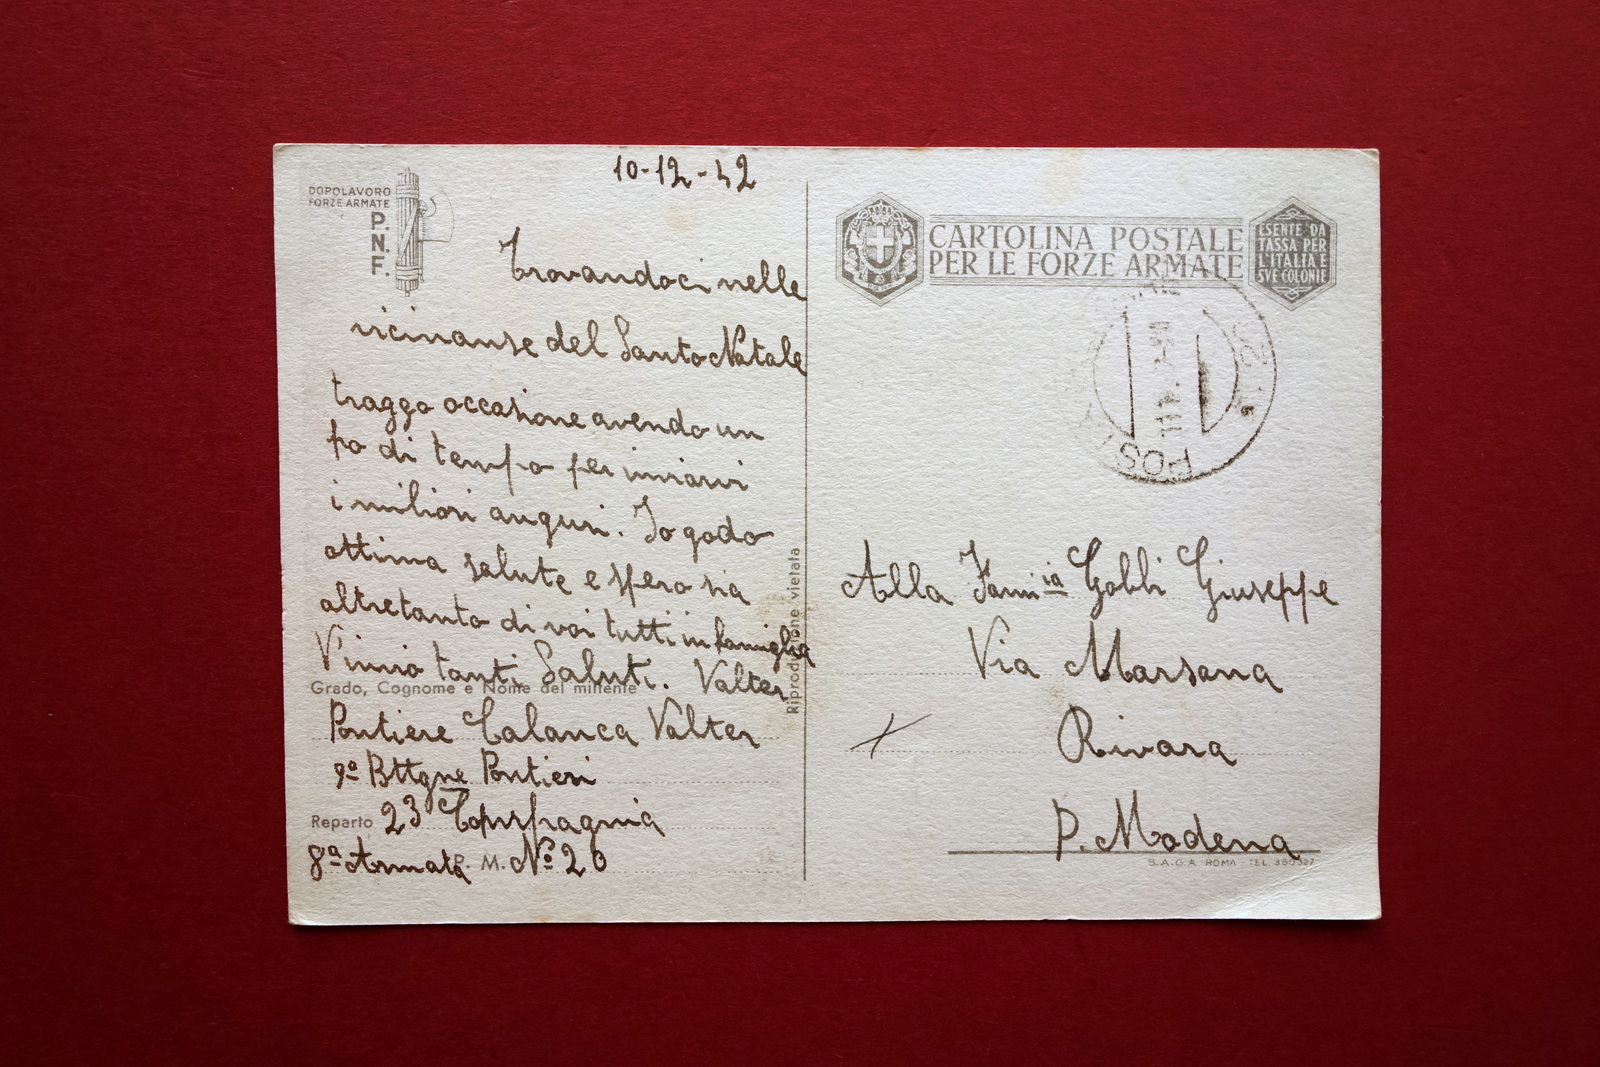 10-12-42
DOPOLAVORO
FORZE ARMATE
P.
N.
F.
Trovandoci nelle
vicinanse del Santo Natale
traggo occasione avendo un
po di tempo per inviarvi
i miliori anguri. Io godo
ottima salute e spero sia
altretanto di voi tutti in famiglia
Vinvio tanti Saluti. Valter
Grado, Cognome e Nome del mittente
Pontiere Calanca Valter
9º Bttgne Pontieri
Reparto 23 Compagnia
8ª Armata P. M. Nº 20
Riproduzione vietata
CARTOLINA POSTALE
PER LE FORZE ARMATE
ESENTE DA
TASSA PER
L'ITALIA E
SVE COLONIE
POST
Alla Famiia Gobbi Giuseppe
Via Marsana
Rivara
P. Modena
S.A.G.A ROMA - TEL 360327